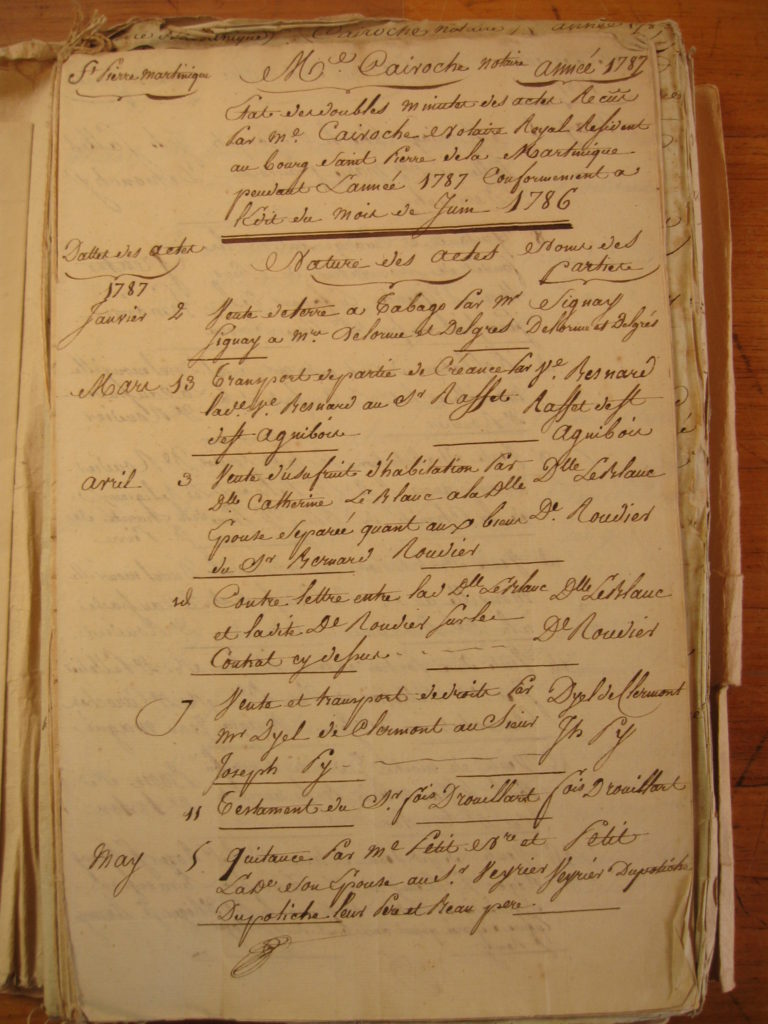 St Pierre Martinique
Me Cairoche notaire année 1787
Etat des doubles minutes des actes Recûs
Par Me Cairoche Notaire Royal Resident
au bourg Saint Pierre de la Martinique
pendant L'année 1787 Conformement a
l'edit du mois de Juin 1786
Dattes des actes Nature des actes Noms des
Parties
1787
Janvier 2 Vente de terre a Tabago Par Mr Signay
Signay a Mrs Delorme et Delgres Dellorme et Delgrés
Mars 13 Transport de partie de Créance Par Ve Besnard
lade Ve Besnard au Sr Raffet Raffet de st
de st Agnibois Agnibois
avril 3 Vente d'usufruit d'habitation Par Dlle LeBlanc
Dlle Catherine Le Blanc a la Dlle De Rouvier
Epouse Separeé quant aux biens
du Sr Bernard Rouvier
id Contre lettre entre lad Dlle LeBlanc Dlle LeBlanc
et ladite De Rouvier sur le De Rouvier
Contrat cy dessus
7 Vente et transport de droits Par Dyel de Clermont
Mr Dyel de Clermont au Sieur Jh Py
Joseph Py
11 Testament du Sr fois Drouillart fois Drouillart
May 5 Quitance Par Me Petit Nre et Petit
La De son Epouse au Sr Veyrier Veyrier Dupotiche
Dupotiche leur Pere et Beau pere